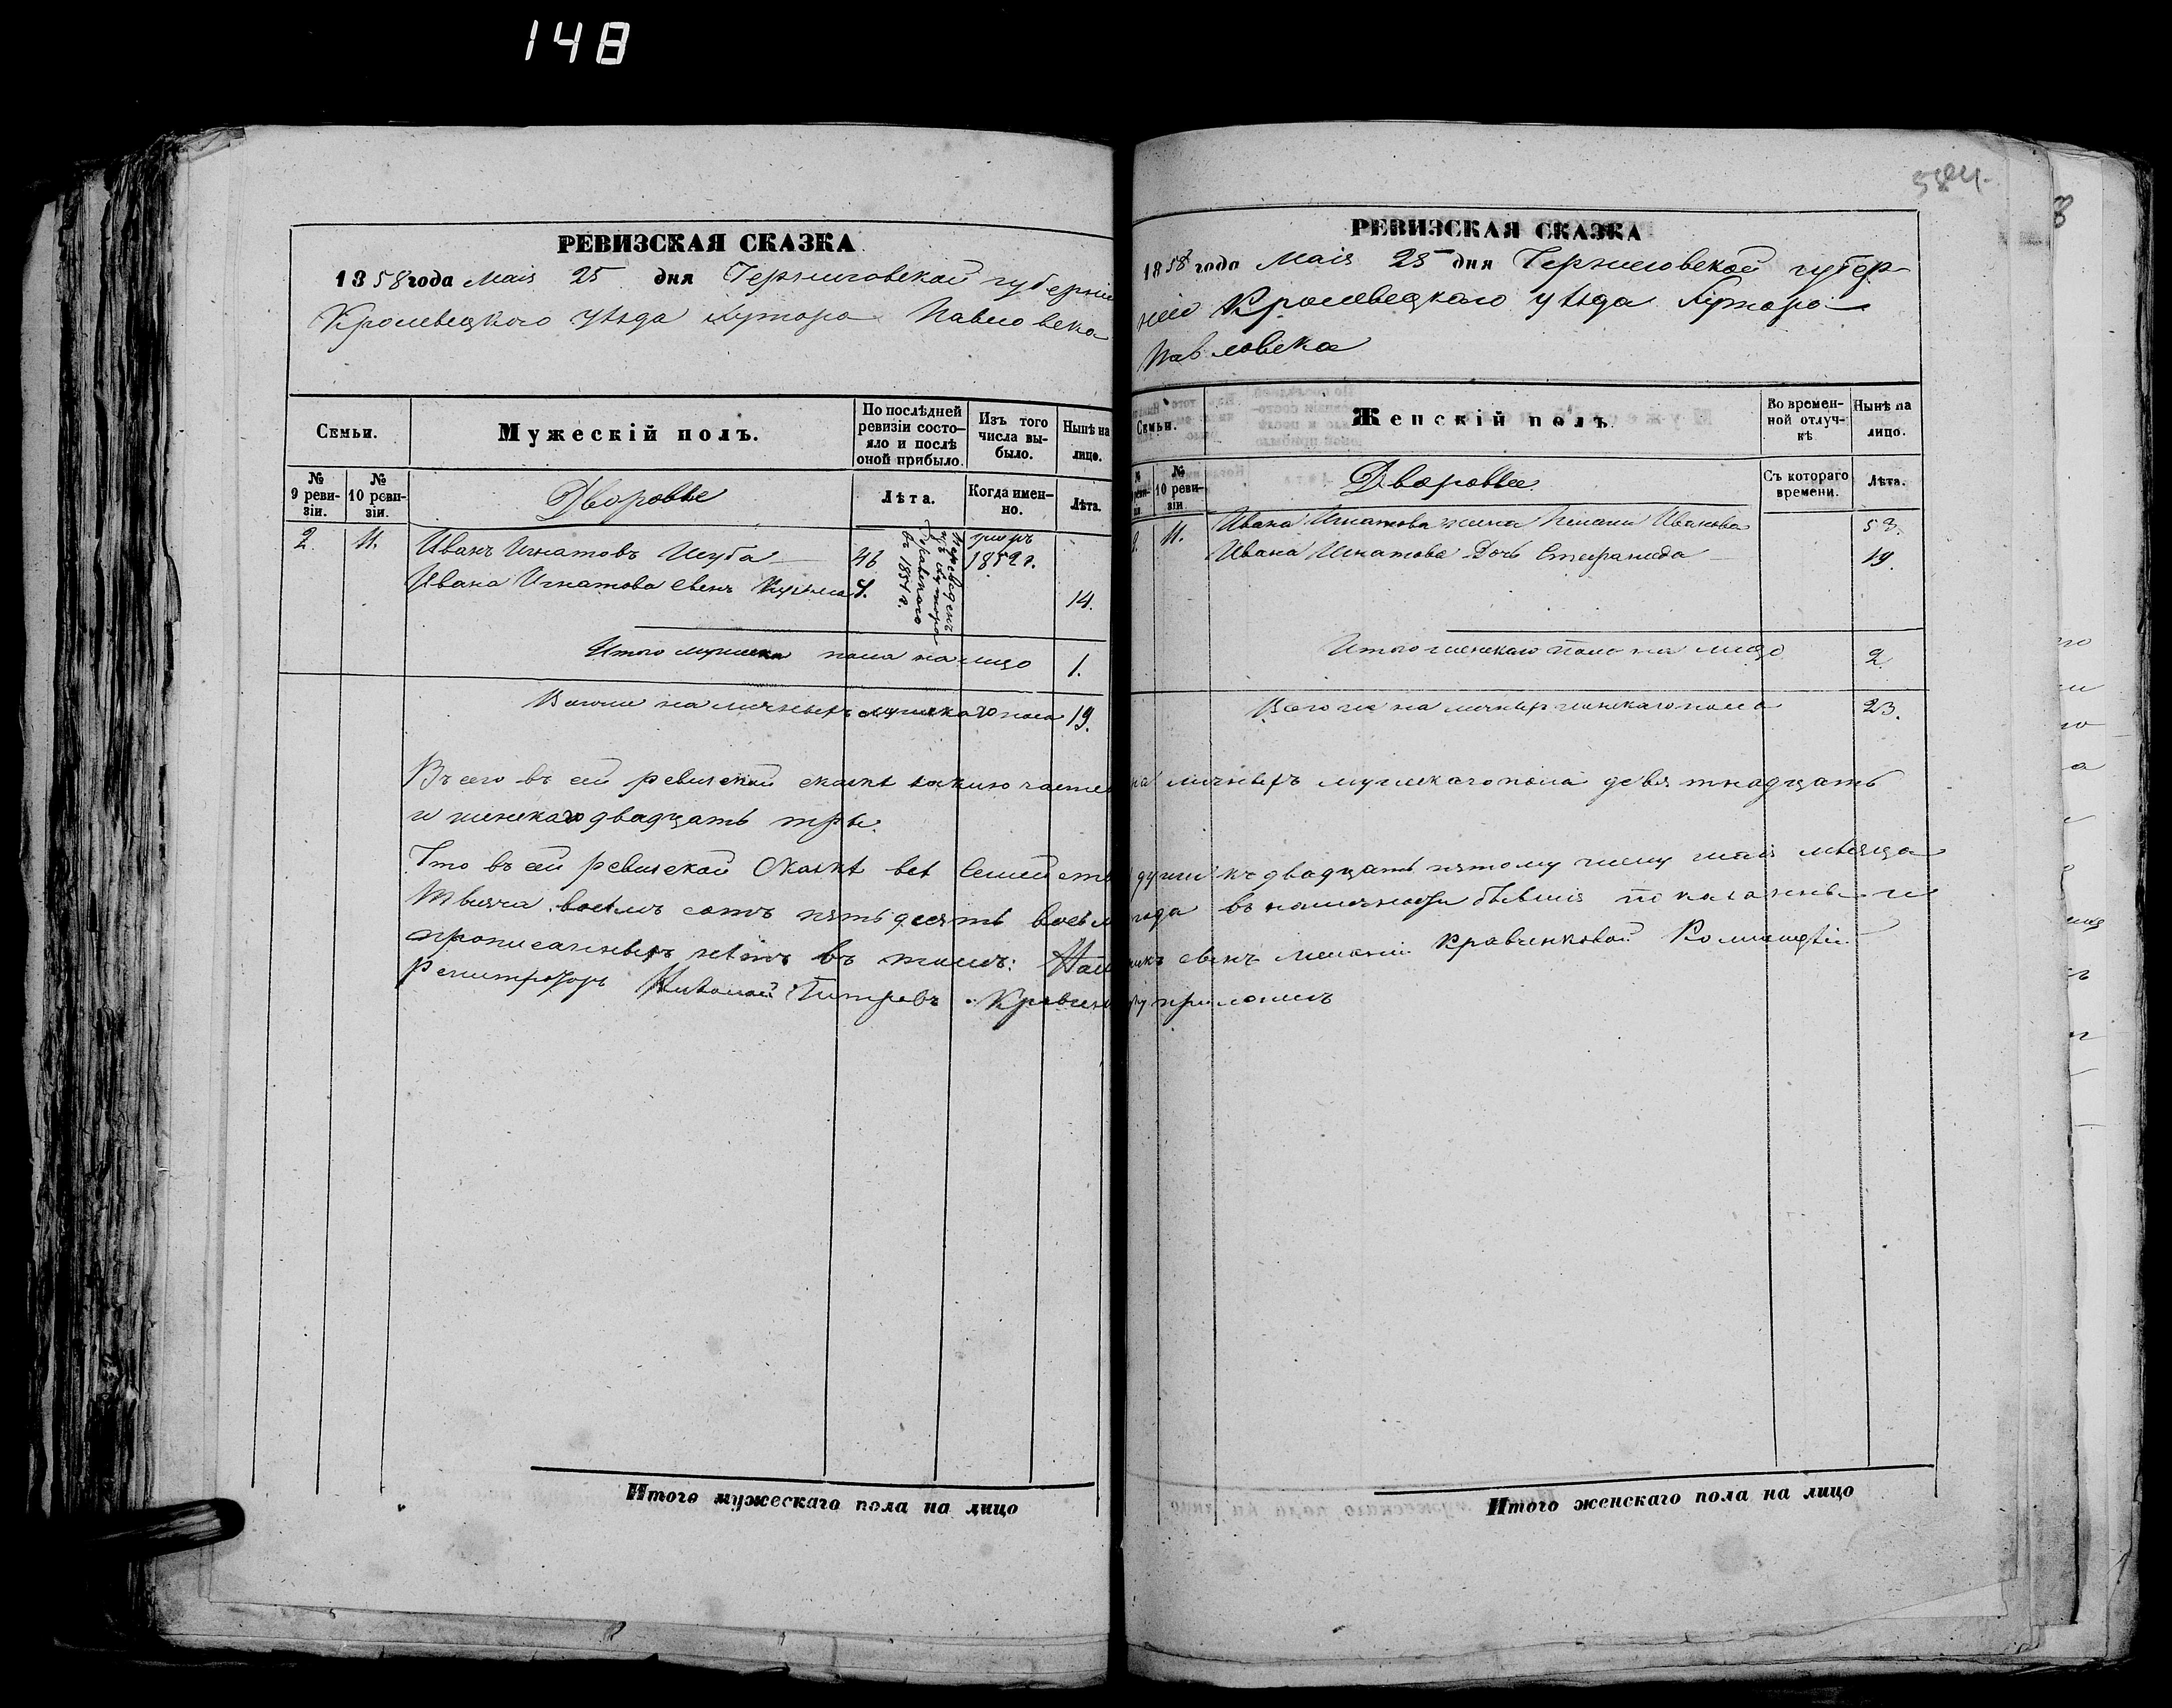 148
584.
РЕВИЗСКАЯ СКАЗКА
1858 года Маія 25 дня Черниговской губерніи
Кролевецкого уѣзда хутора Павловска
Семьи.
Мужескій полъ.
По послѣдней ревизіи состояло и послѣ оной прибыло.
Изъ того числа выбыло.
Нынѣ на лицо.
№ 9 ревизіи.
№ 10 ревизіи.
Дворовые
Лѣта.
Когда именно.
Лѣта.
2. 11. Иванъ Игнатовъ Шуба 46 умеръ 1852 г.
Ивана Игнатова сынъ Кузьма 7. 14.
Переведенъ изъ хутора
въ 1857 г.
Итого мужеска пола на лицо 1.
Всего же наличныхъ мужскаго пола 19.
РЕВИЗСКАЯ СКАЗКА
1858 года Маія 25 дня Черниговской губер-
ніи Кролевецкаго уѣзда хутора
Павловска
Семьи.
Женскій полъ.
Во временной отлучкѣ
Нынѣ на лицо.
№ 10 ревизіи
Дворовые
Съ котораго времени.
Лѣта.
11. Ивана Игнатова жена Ивановa 53.
Ивана Игнатова дочь Стефанида 19.
Итого женскаго пола на лицо 2.
Всего же наличныхъ женскаго пола 23.
Всего въ сей ревизской сказкѣ наличныхъ мужескаго пола девятнадцать
и женскаго двадцать три.
Что въ сей ревизской сказкѣ всѣ души къ двадцать пятому числу маія мѣсяца
тысяча восемь сотъ пятьдесятъ года въ наличности бывшія показаны и
прописанныхъ нѣтъ въ томъ: сынъ Кравченковой
Николай Петровъ приложилъ
Итого мужескаго пола на лицо
Итого женскаго пола на лицо